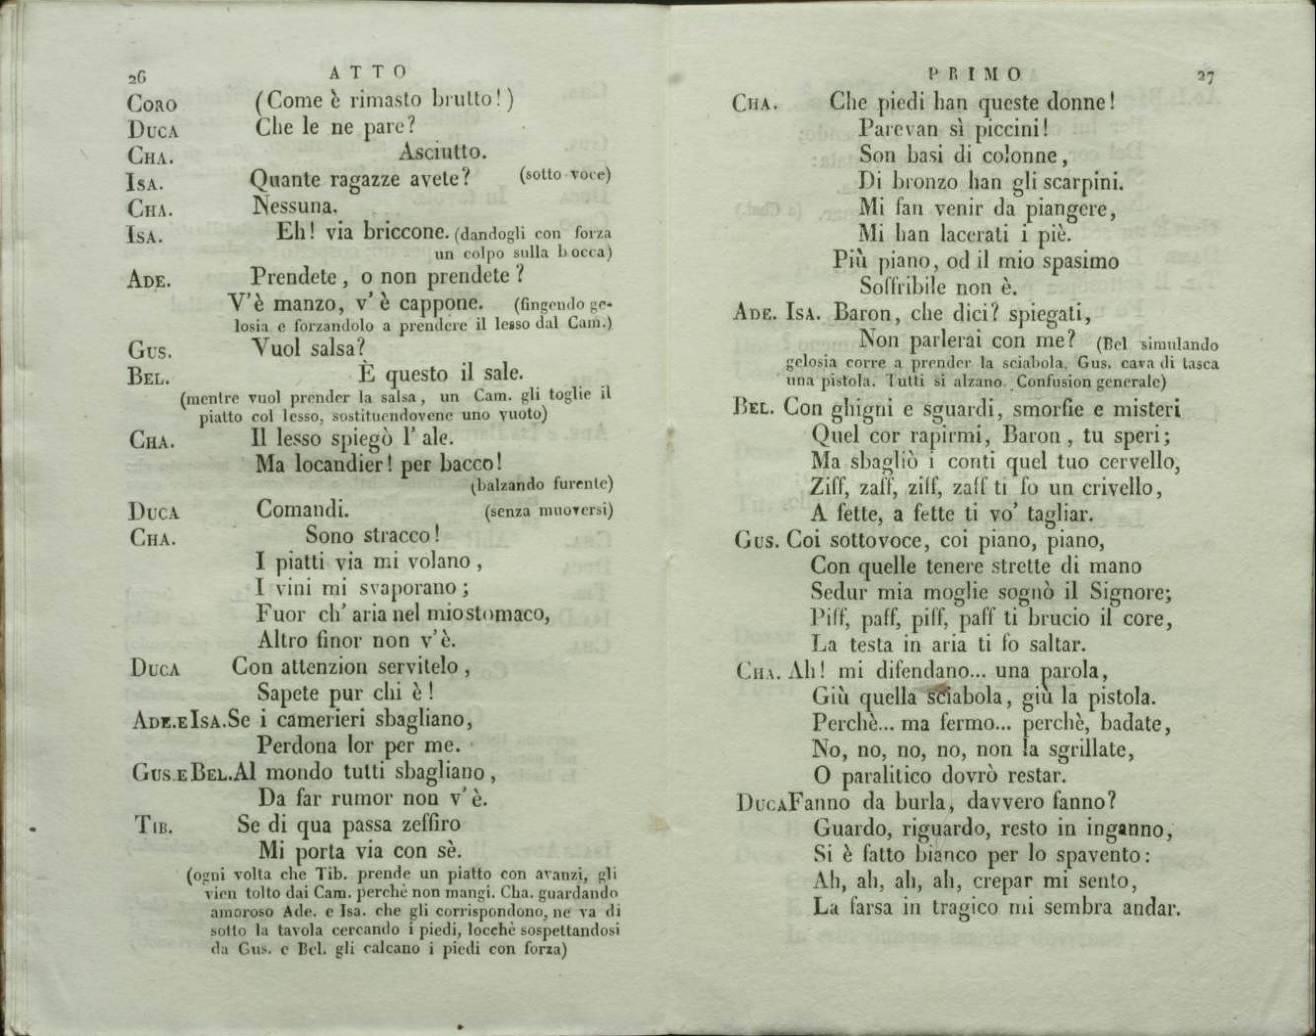 26 ATTO
CORO (Come è rimasto brutto!)
DUCA Che le ne pare?
CHA. Asciutto.
ISA. Quante ragazze avete? (sotto voce)
CHA. Nessuna.
ISA. Eh! via briccone. (dandogli con forza
un colpo sulla bocca)
ADE. Prendete, o non prendete?
V'è manzo, v'è cappone. (fingendo ge-
losia e forzandolo a prendere il lesso dal Cam.)
GUS. Vuol salsa?
BEL. È questo il sale.
(mentre vuol prender la salsa, un Cam. gli toglie il
piatto col lesso, sostituendovene uno vuoto)
CHA. Il lesso spiegò l'ale.
Ma locandier! per bacco!
(balzando furente)
DUCA Comandi. (senza muoversi)
CHA. Sono stracco!
I piatti via mi volano,
I vini mi svaporano;
Fuor ch'aria nel mio stomaco,
Altro finor non v'è.
DUCA Con attenzion servitelo,
Sapete pur chi è!
ADE. E ISA. Se i camerieri sbagliano,
Perdona lor per me.
GUS. E BEL. Al mondo tutti sbagliano,
Da far rumor non v'è.
TIB. Se di qua passa zeffiro
Mi porta via con sè.
(ogni volta che Tib. prende un piatto con avanzi, gli
vien tolto dai Cam. perchè non mangi. Cha. guardando
amoroso Ade. e Isa. che gli corrispondono, ne va di
sotto la tavola cercando i piedi, locchè sospettandosi
da Gus. e Bel. gli calcano i piedi con forza)
PRIMO 27
CHA. Che piedi han queste donne!
Parevan sì piccini!
Son basi di colonne,
Di bronzo han gli scarpini.
Mi fan venir da piangere,
Mi han lacerati i piè.
Più piano, od il mio spasimo
Soffribile non è.
ADE. ISA. Baron, che dici? spiegati,
Non parlerai con me? (Bel simulando
gelosia corre a prender la sciabola, Gus. cava di tasca
una pistola. Tutti si alzano. Confusion generale)
BEL. Con ghigni e sguardi, smorfie e misteri
Quel cor rapirmi, Baron, tu speri;
Ma sbagliò i conti quel tuo cervello,
Ziff, zaff, ziff, zaff ti fo un crivello,
A fette, a fette ti vo' tagliar.
GUS. Coi sottovoce, coi piano, piano,
Con quelle tenere strette di mano
Sedur mia moglie sognò il Signore;
Piff, paff, piff, paff ti brucio il core,
La testa in aria ti fo saltar.
CHA. Ah! mi difendano... una parola,
Giù quella sciabola, giù la pistola.
Perchè... ma fermo... perchè, badate,
No, no, no, no, non la sgrillate,
O paralitico dovrò restar.
DUCA Fanno da burla, davvero fanno?
Guardo, riguardo, resto in inganno,
Si è fatto bianco per lo spavento:
Ah, ah, ah, ah, crepar mi sento,
La farsa in tragico mi sembra andar.